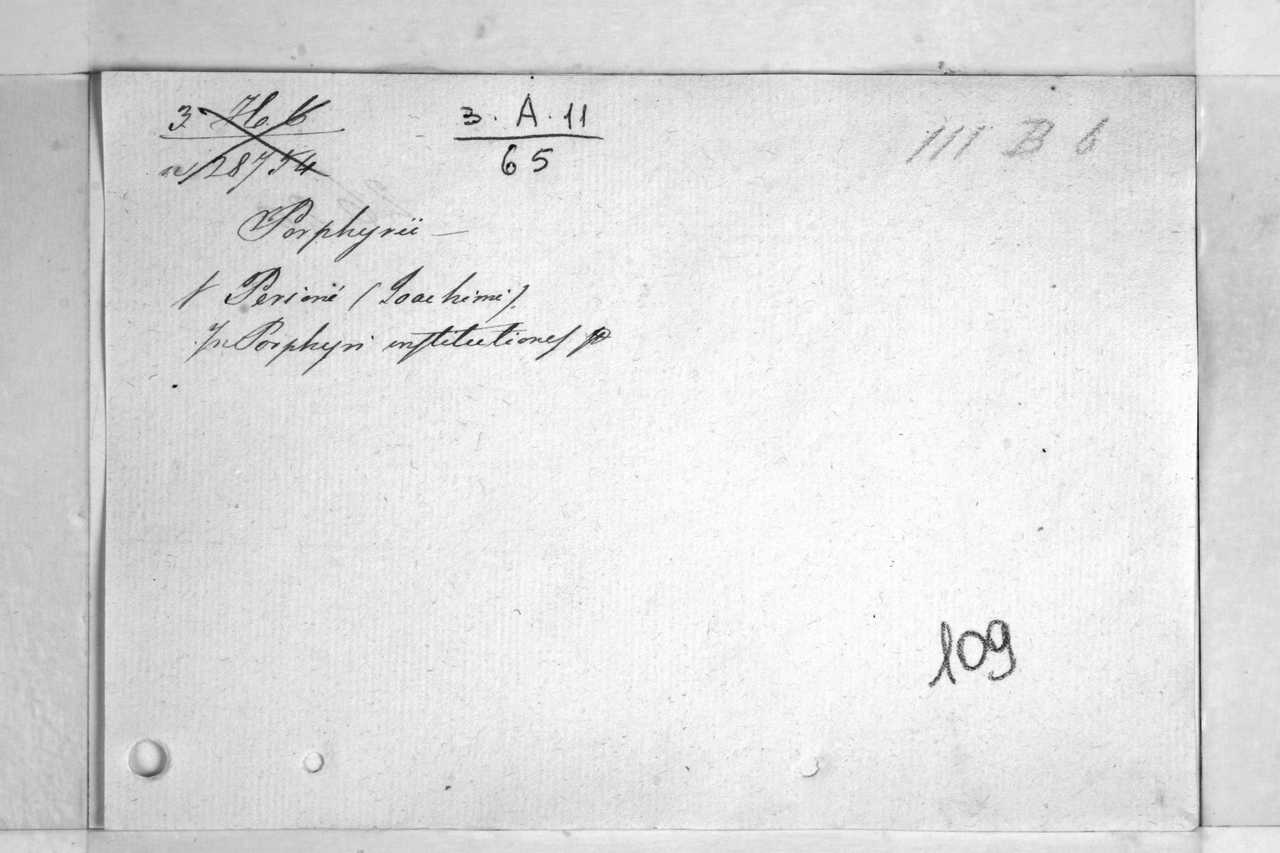 3. H. 6 3. A. 11 III B 6
28754 65
Porphyrii —
Perionii (Ioachimi)
In Porphyri institutiones
109